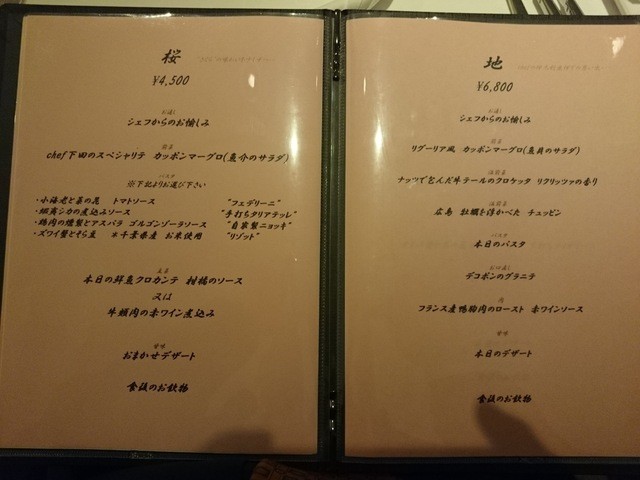 桜
¥4,500
お通し
シェフからのお愉しみ
前菜
chef下田のスペシャリテ カッポンマーグロ(魚介のサラダ)
パスタ
※下記よりお選び下さい
・小海老と菜の花 トマトソース "フェデリーニ"
・蝦夷シカの煮込みソース "手打ちタリアテッレ"
・鶏肉の燻製とアスパラ ゴルゴンゾーラソース "自家製ニョッキ"
・ズワイ蟹とそら豆 *千葉県産 お米使用 "リゾット"
主菜
本日の鮮魚クロカンテ 柑橘のソース
又は
牛頬肉の赤ワイン煮込み
甘味
おまかせデザート
食後のお飲物
地
¥6,800
お通し
シェフからのお愉しみ
前菜
リグーリア風 カッポンマーグロ(魚貝のサラダ)
温前菜
ナッツで包んだ牛テールのクロケッタ リクリッツァの香り
温前菜
広島 牡蠣を浮かべた チュッピン
パスタ
本日のパスタ
お口直し
デコポンのグラニテ
肉
フランス産鴨胸肉のロースト 赤ワインソース
甘味
本日のデザート
食後のお飲物